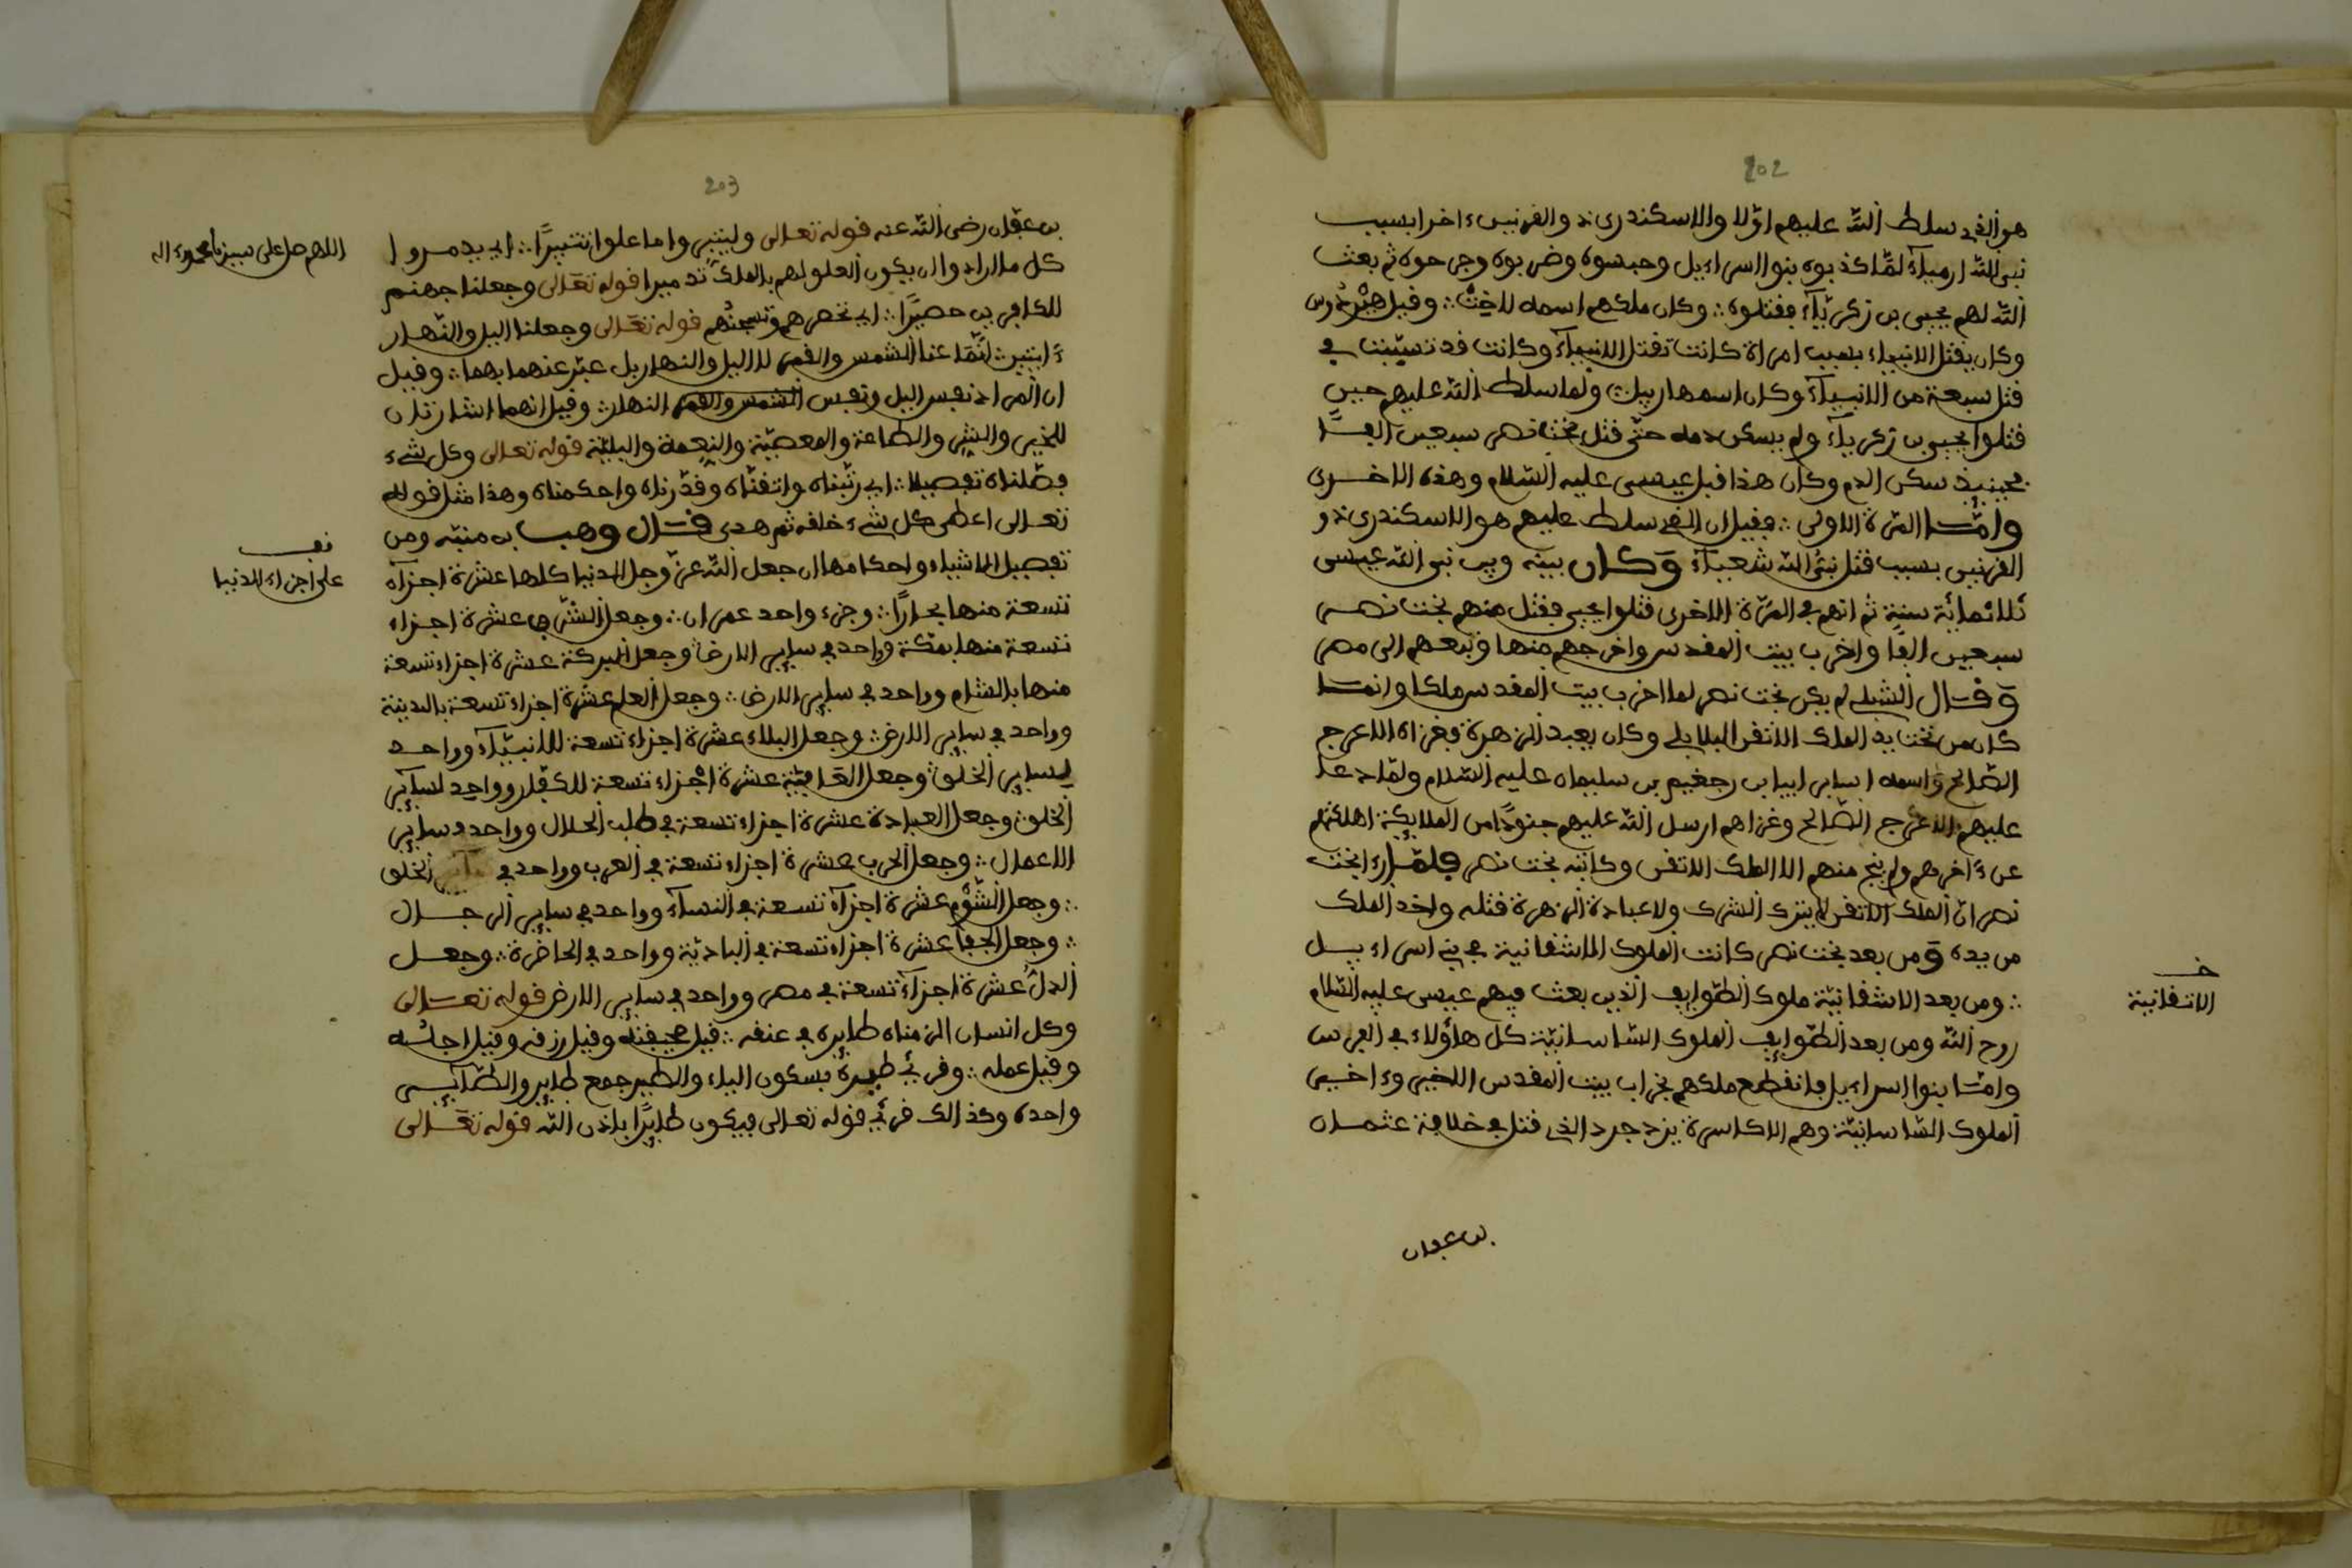 202
هو الذي سلط الله عليهم اولا والاسكندري والفرنيس ءاخرا بسبب
نبي الله ارمياء لما كذبوه بنوا اسراءيل وحبسوه وضربوه وجرحوه ثم بعث
الله لهم يحيى بن زكرياء فقتلوه وكان ملكهم اسمه لاخت وقيل هيردوس
وكان يقتل الانبياء بسبب امراة كانت تقتل الانبياء وكانت قد تسببت في
قتل سبعة من الانبياء وكان اسمها ربيل ولما سلط الله عليهم حين
قتلوا يحيى بن زكرياء ولم يسكن دمه حتى قتل بخت نصر سبعين الفا
فحينيذ سكن الدم وكان هذا قبل عيسى عليه السلام وهذه الاخرى
وامّا المرة الاولى فقيل ان الذي سلط عليهم هو الاسكندري و
الفرنيس بسبب قتل نبي الله شعياء وكان بينه وبين نبي الله عيسى
ثلاثماية سنة ثم انهم في المرة الاخرى قتلوا يحيى فقتل منهم بخت نصر
سبعين الفا واخرب بيت المقدس واخرجهم منها وتبعهم الى مصر
وقال الشبلي لم يكن بخت نصر لما اخرب بيت المقدس ملكا وانما
كان من تحت يد الملك الاتفر البابلي وكان يعبد الزهرة فغزاه الاعرج
الصالح واسمه اسا بن ابيا بن رجعيم بن سليمان عليه السلام ولما دعا
عليهم الاعرج الصالح وغزاهم ارسل الله عليهم جنودا من الملايكة اهلكتهم
عن ءاخرهم ولم ينج منهم الا الملك الاتفر وكاتبه بخت نصر فلما راى بخت
نصر ان الملك الاتفر لم يترك الشرك ولا عبادة الزهرة قتله واخذ الملك
من يده ومن بعد بخت نصر كانت الملوك الاشفانية في بني اسراءيل
ومن بعد الاشفانية ملوك الطوايف الذين بعث فيهم عيسى عليه السلام
روح الله ومن بعد الطوايف الملوك الساسانية كل هاؤلاء في الفرس
وامّا بنوا اسراءيل فانقطع ملكهم بخراب بيت المقدس الاخير وءاخر
الملوك الساسانية وهم الاكاسرة يزدجرد الذي قتل في خلافة عثمان
خ
الاتفانية
بن عفان
203
بن عفان رضي الله عنه قوله تعالى وليتبروا ما علوا تتبيرا اي يدمروا
كل ما ارادوا ان يكون العلو لهم بالملك تدميرا قوله تعالى وجعلنا جهنم
للكافرين حصيرا اي تحصرهم وتسجنهم قوله تعالى وجعلنا اليل والنهار
ءايتين انما عنا الشمس والقمر لا اليل والنهار بل عبر عنهما بهما وقيل
ان المراد نفس اليل ونفس الشمس والقمر النهار وقيل انهما اشارتان
للخير والشر والطاعة والمعصية والنعمة والبلية قوله تعالى وكل شيء
فصلناه تفصيلا اي رتبناه واتقناه وقدرناه واحكمناه وهذا مثل قوله
تعالى اعطى كل شيء خلقه ثم هدى قال وهب بن منبه ومن
تفصيل الاشياء واحكامها ان جعل الله عز وجل الدنيا كلها عشرة اجزاء
تسعة منها بحارا وجزء واحد عمران وجعل الشر عشرة اجزاء
تسعة منها بمكة وواحد في ساير الارض وجعل البركة عشرة اجزاء تسعة
منها بالشام وواحد في ساير الارض وجعل العلم عشرة اجزاء تسعة بالمدينة
وواحد في ساير الارض وجعل البلاء عشرة اجزاء تسعة للانبياء وواحد
لساير الخلق وجعل العافية عشرة اجزاء تسعة للكفار وواحد لساير
الخلق وجعل العبادة عشرة اجزاء تسعة في طلب الحلال وواحد في ساير
الاعمال وجعل الحرب عشرة اجزاء تسعة في العرب وواحد في ساير الخلق
وجعل الشؤم عشرة اجزاء تسعة في النساء وواحد في ساير الرجال
وجعل الجفا عشرة اجزاء تسعة في البادية وواحد في الحاضرة وجعل
الذل عشرة اجزاء تسعة في مصر وواحد في ساير الارض قوله تعالى
وكل انسان الزمناه طايره في عنقه قيل صحيفته وقيل رزقه وقيل اجله
وقيل عمله وقرئ طيره بسكون الياء والطير جمع طاير والطاير
واحده وكذالك قرئ قوله تعالى فيكون طايرا باذن الله قوله تعالى
اللهم صل على سيدنا محمد وءاله
نعف
على اجزاء الدنيا